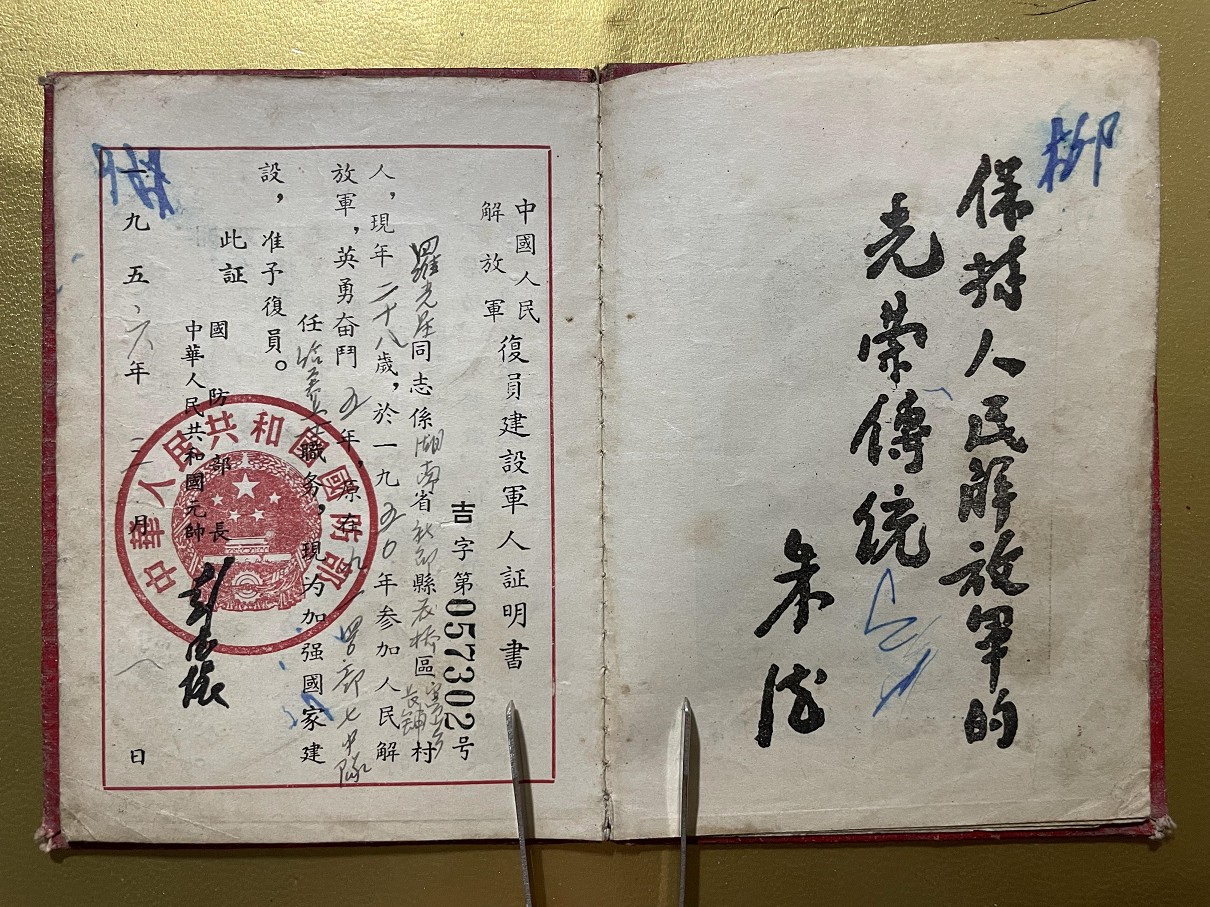 保持人民解放軍的
光榮傳統
朱德
柳
中國人民
解放軍
復員建設軍人証明書
吉字第0573302号
羅光星同志係湖南省縣橋區村
人，現年二十八歲，於一九五0年参加人民解
放軍，英勇奋鬥五年，原在九一部七中隊
任給养士職务，現为加强國家建
設，准予復員。
此証
國防部長
中華人民共和國元帥
彭德懷
一九五六年三月八日
中華人民共和國國防部